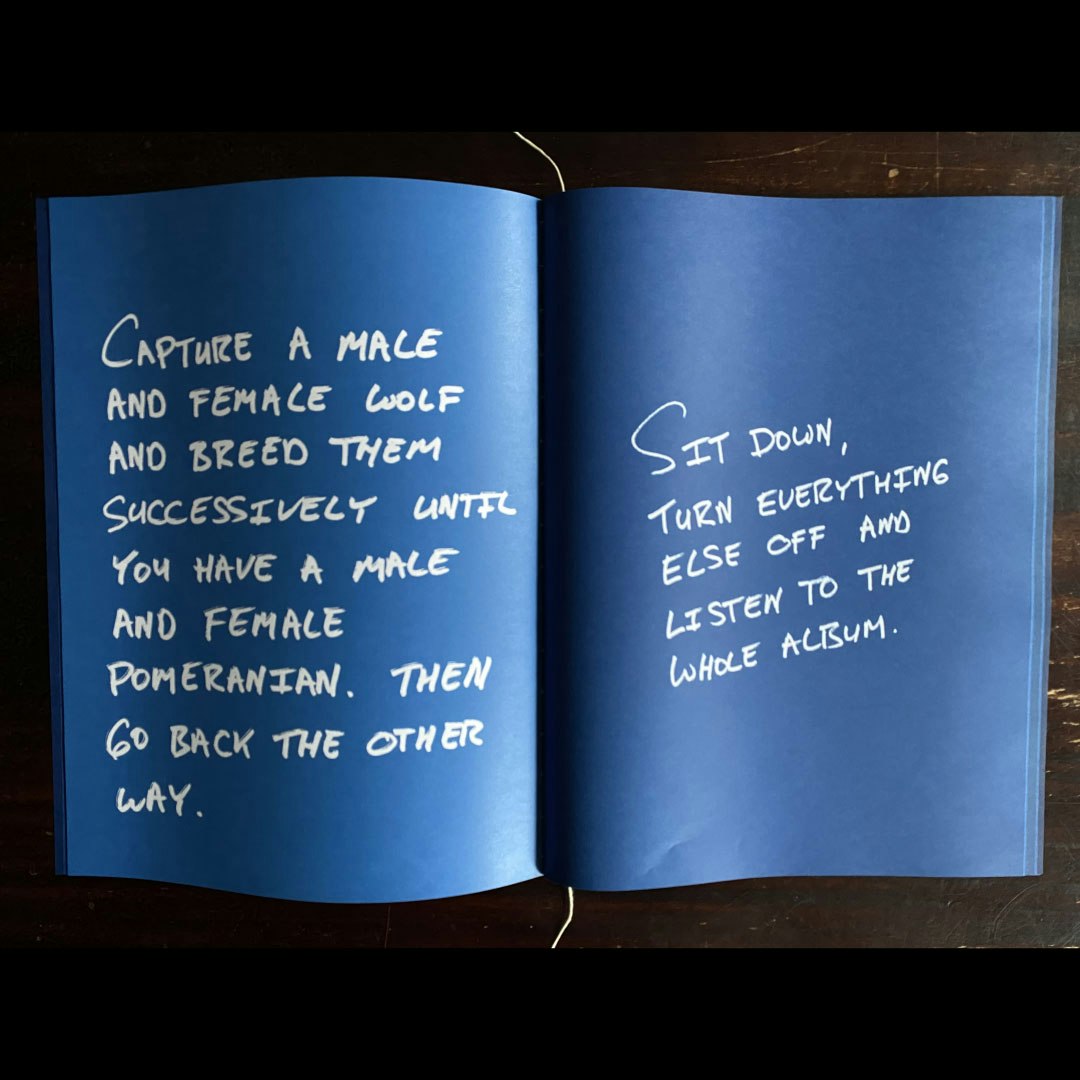 CAPTURE A MALE
AND FEMALE WOLF
AND BREED THEM
SUCCESSIVELY UNTIL
YOU HAVE A MALE
AND FEMALE
POMERANIAN. THEN
GO BACK THE OTHER
WAY.
SIT DOWN,
TURN EVERYTHING
ELSE OFF AND
LISTEN TO THE
WHOLE ALBUM.